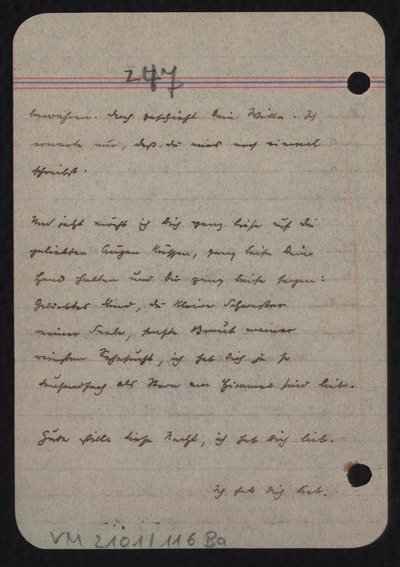 247
bewahren. Doch geschieht Dein Wille. Ich
erwarte nur, daß du mir noch einmal
schreibst.
Und jetzt möcht ich Dich ganz leise auf die
geliebten Augen küssen, ganz leise Deine
Hand halten und Dir ganz leise sagen:
Geliebtes Kind, du kleine Schwester
meiner Seele, sanfte Braut meiner
Sehnsucht, ich hab Dich ja so
tausendfach als Stern am Himmel sind lieb.
Gute stille liebe Nacht, ich hab Dich lieb.
Ich hab Dich lieb.
VM 2101/116 Ba